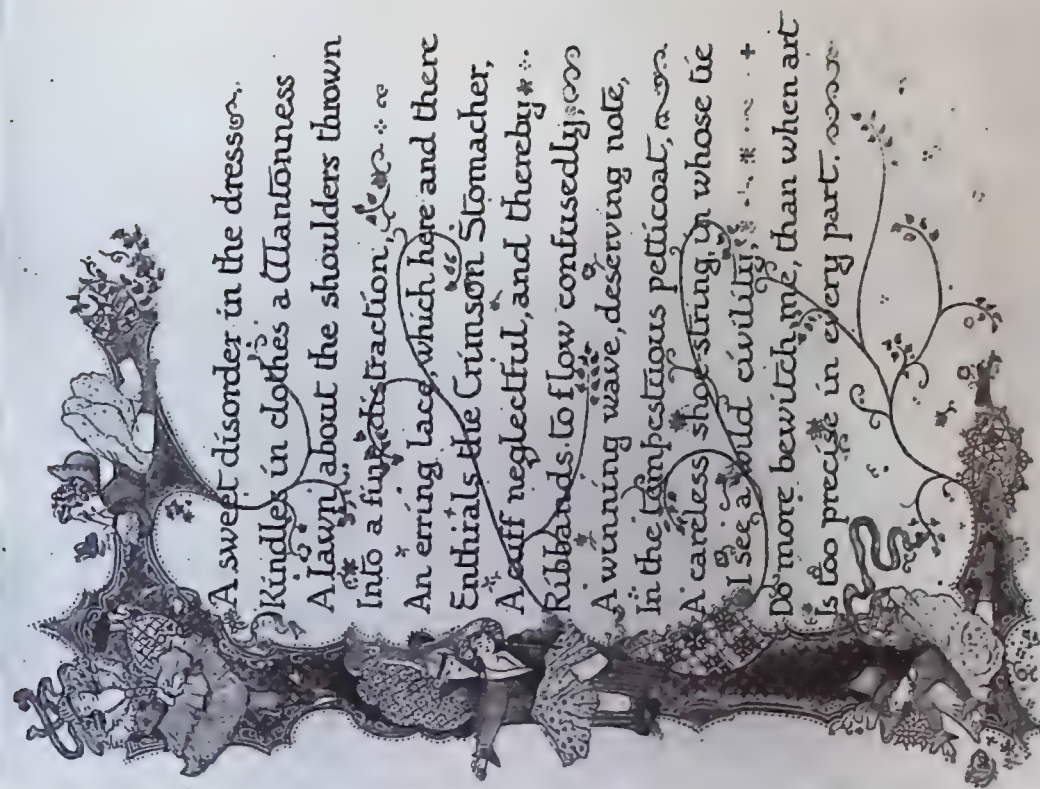 A sweet disorder in the dress
Kindles in clothes a Wantonness
A lawn about the shoulders thrown
Into a fine distraction,
An erring lace, which here and there
Enthrals the Crimson Stomacher,
A cuff neglectful, and thereby
Ribbands to flow confusedly;
A winning wave, deserving note,
In the tempestuous petticoat,
A careless shoe-string, in whose tie
I see a wild civility;
Do more bewitch me, than when art
Is too precise in every part.